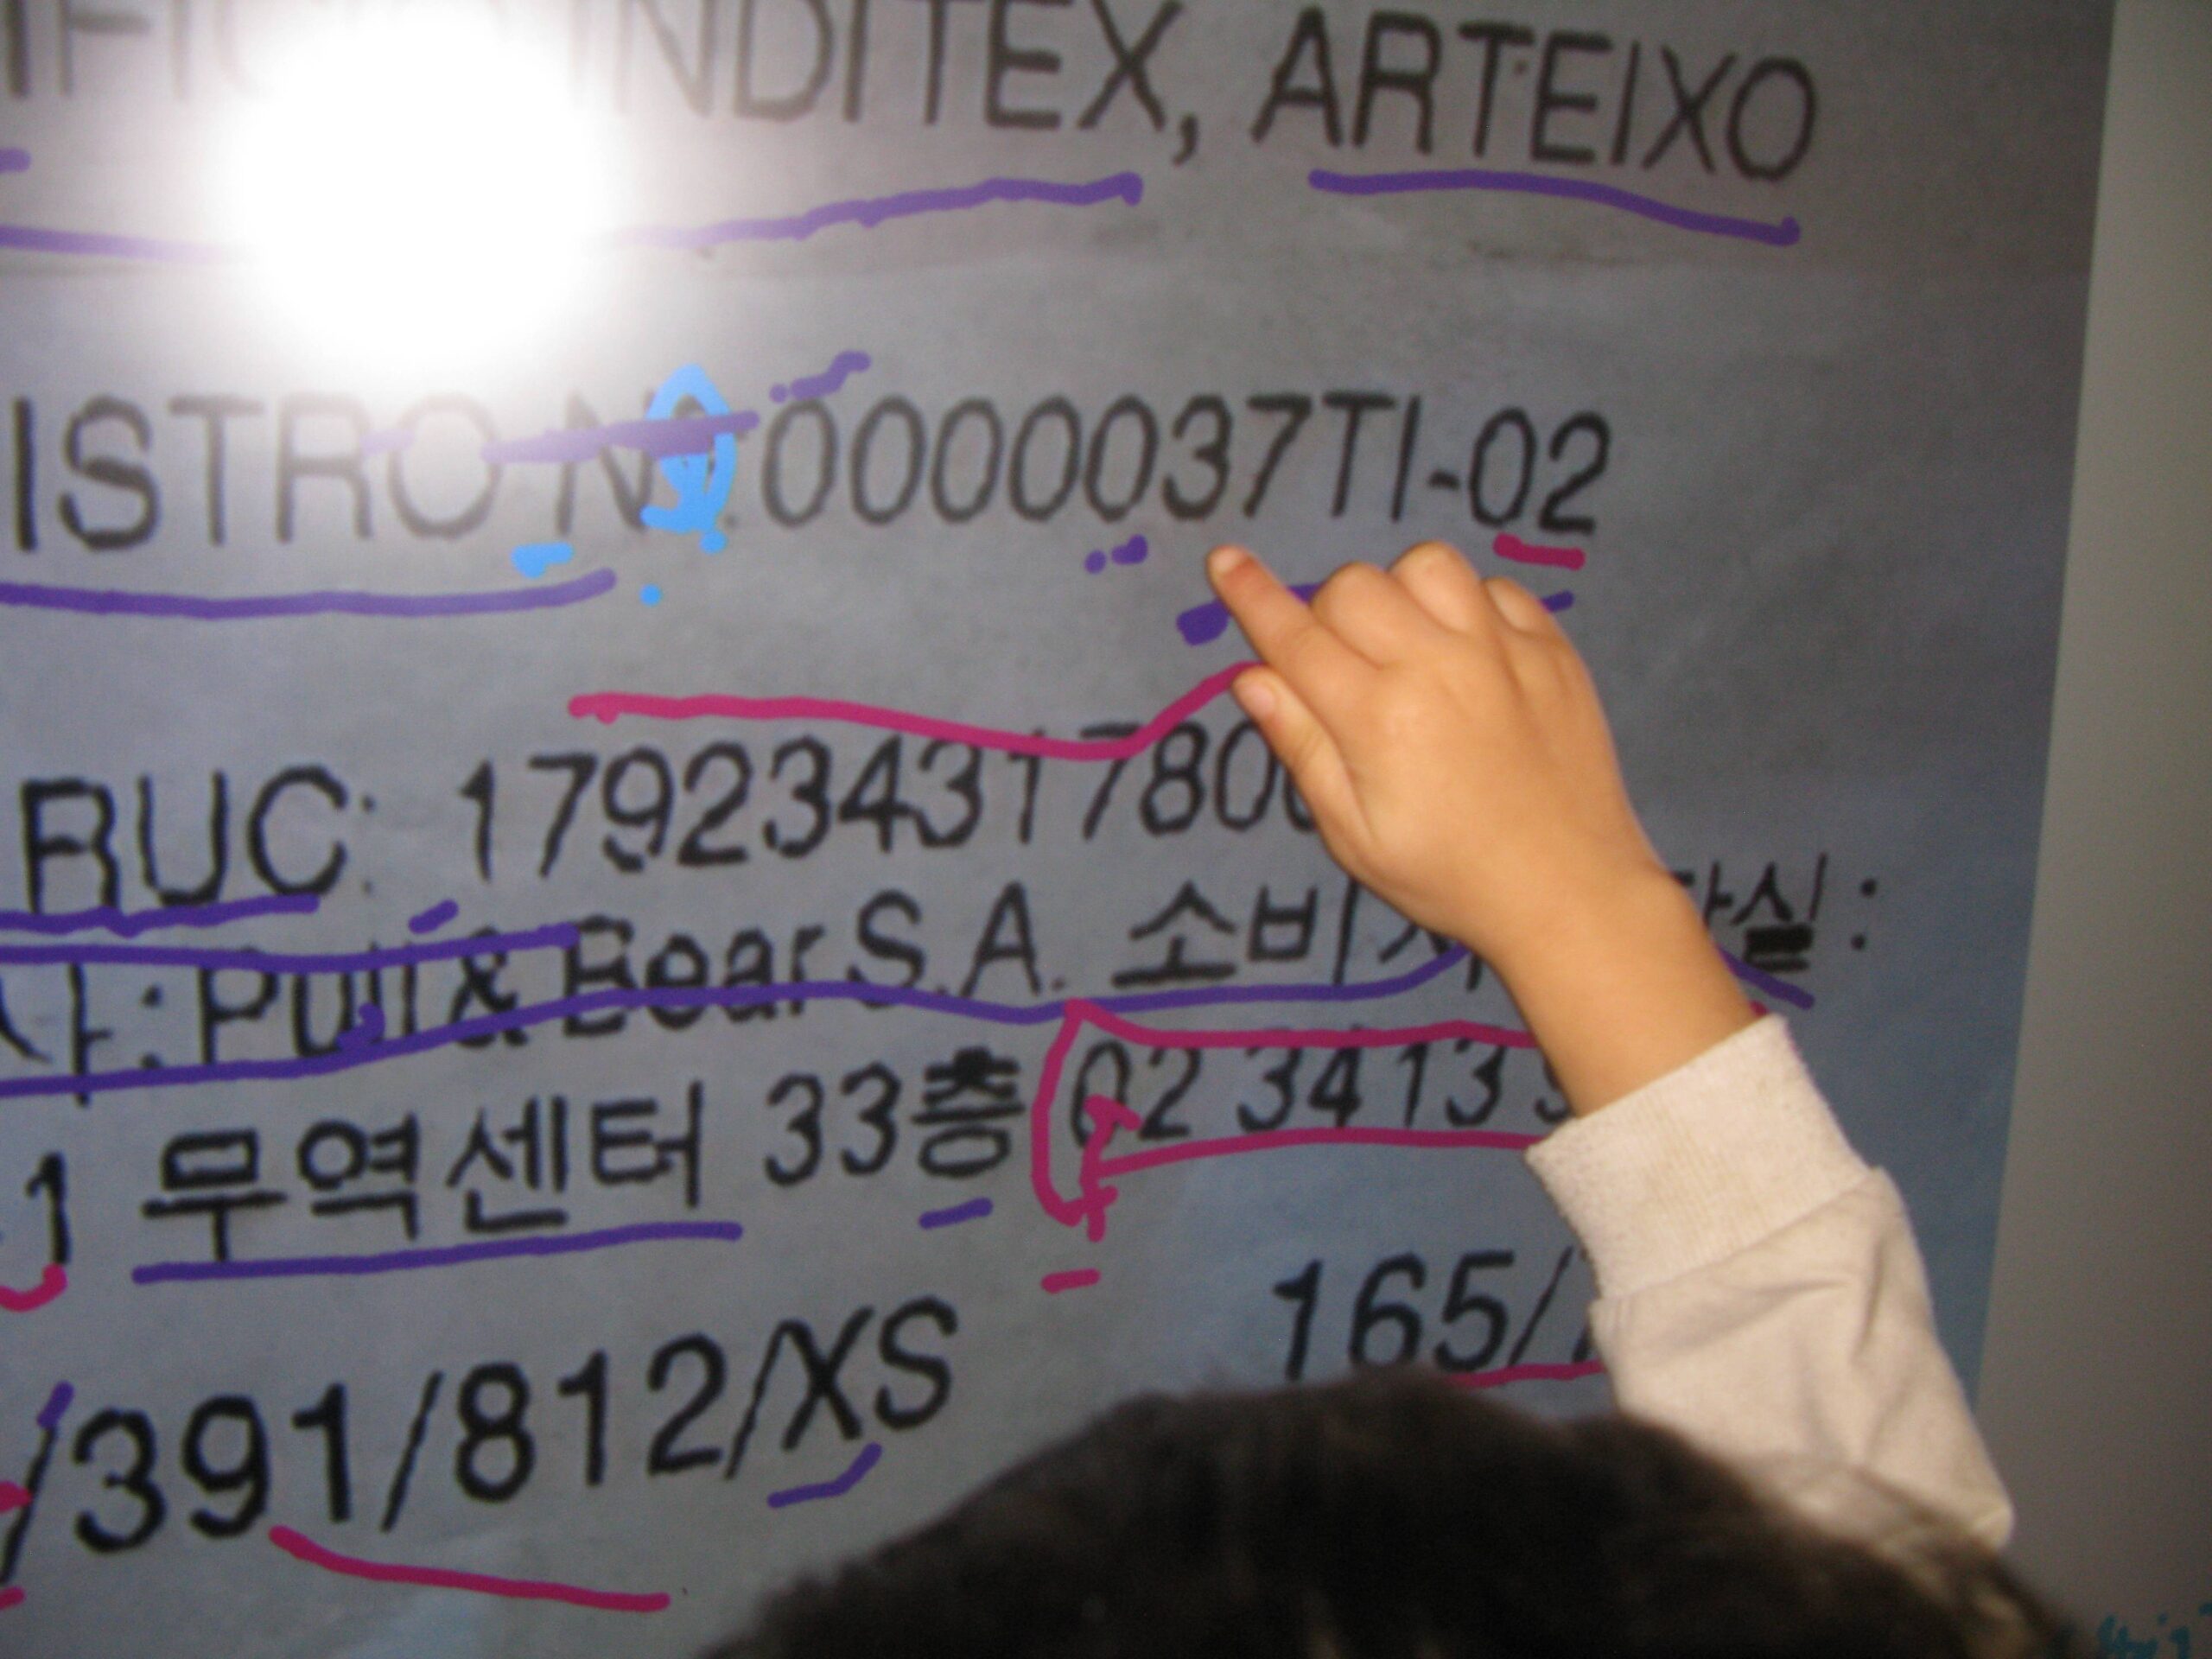 INDITEX, ARTEIXO
ISTRO Nº.0000037TI-02
RUC: 179234317800
: Pull & Bear S.A. 소비
1 무역센터 33층 02 3413
/391/812/XS 165/